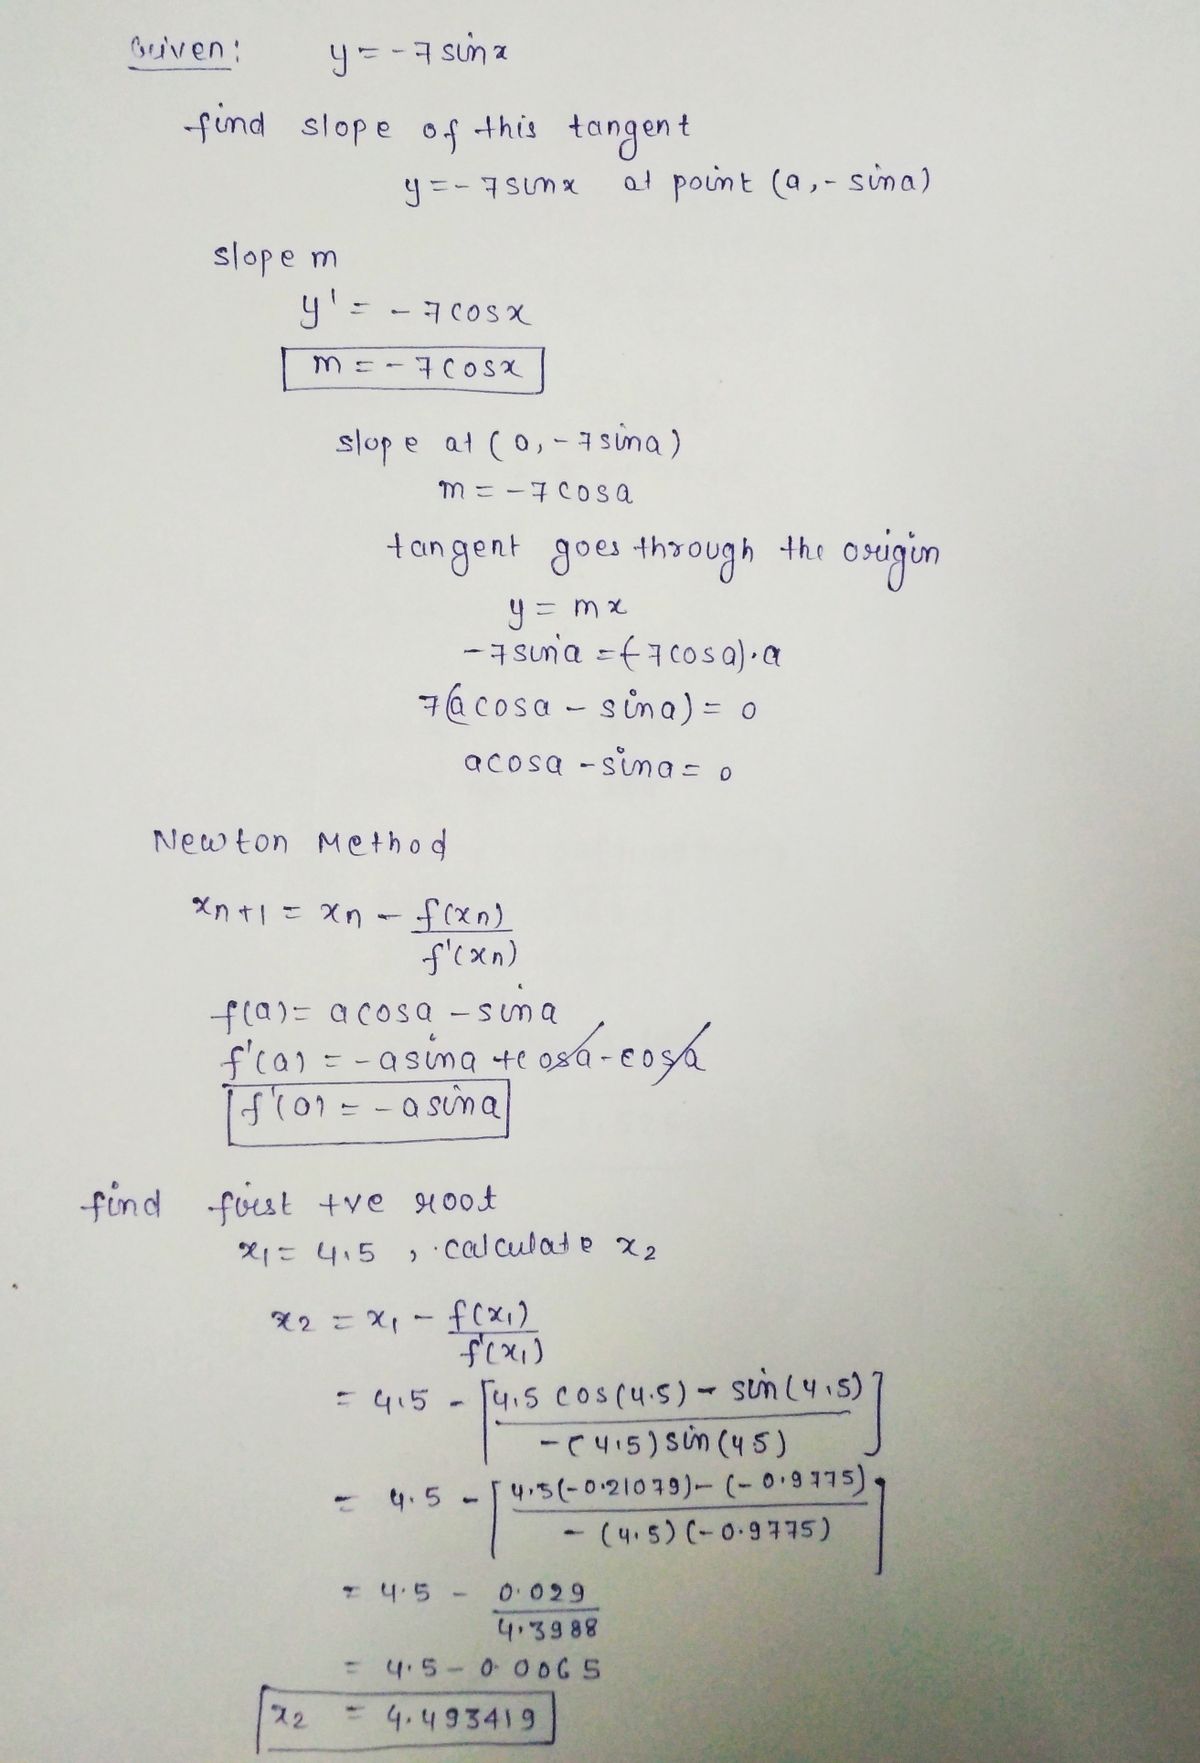 Given: y = -7 sinx
find slope of this tangent
y = -7sinx at point (a, -sina)
slope m
y' = -7cosx
m = -7cosx
slope at (a, -7sina)
m = -7cosa
tangent goes through the origin
y = mx
-7sina = (-7cosa)·a
7(acosa - sina) = 0
acosa - sina = 0
Newton Method
xn+1 = xn - f(xn)
f'(xn)
f(a) = acosa - sina
f'(a) = -asina + cosa - cosa
f'(a) = -asina
find first +ve root
x1 = 4.5, calculate x2
x2 = x1 - f(x1)
f'(x1)
= 4.5 - [4.5 cos(4.5) - sin(4.5)]
-(4.5)sin(45)
= 4.5 - [4.5(-0.21079) - (-0.9775)]
-(4.5)(-0.9775)
= 4.5 - 0.029
4.3988
= 4.5 - 0.0065
x2 = 4.493419